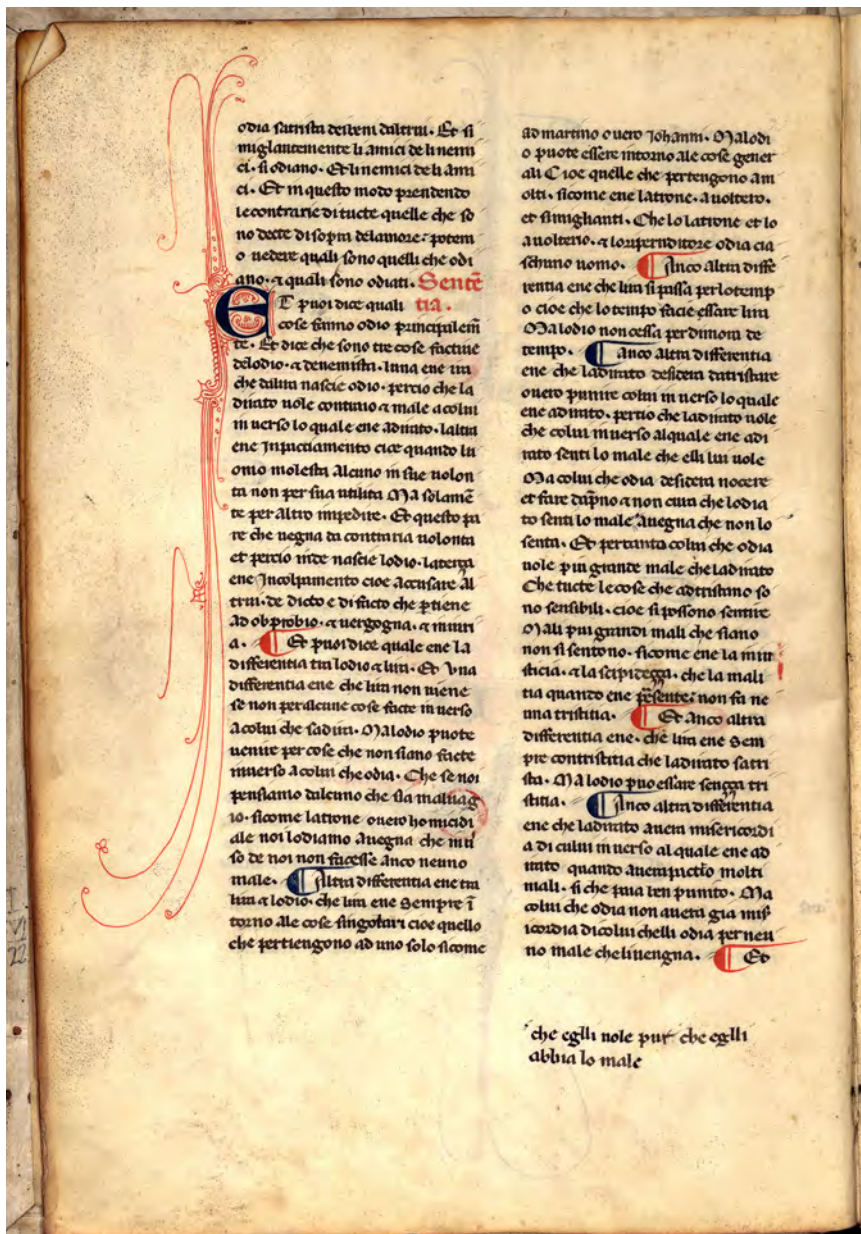 odia satrista deibeni daltrui. Et si
miglantemente li amici de li nemi
ci. si odiano. Et li nemici de li ami
ci. Et in questo modo prendendo
le contrarie di tucte quelle che so
no decte di sopra delamore: potem
o uedere quali sono quelli che odi
ano. ⁊ quali sono odiati. Sentē
ET puoi dice quali tia.
cose fanno odio principalem̄
te. Et dice che sono tre cose factiue
delodio. ⁊ denemista. luna ene ira
che dalira nascie odio. percio che la
dirato uole contraio ⁊ male acolui
in uerso lo quale ene adirato. laltra
ene Inpacciamento cioe quando lu
omo molesta alcuno in sue uolon
ta non per sua utilita Ma solamē
te per altro impedire. Et questo pa
re che uegna da contraria uolonta
et percio inde nascie lodio. laterça
ene Incolpamento cioe accusare al
trui. de dicto e di facto che ꝑtiene
ad obprobio. ⁊ uergogna. ⁊ iniuri
a. Et puoi dice quale ene la
differentia tra lodio ⁊ lira. Et Vna
differentia ene che lira non uiene
se non per alcune cose facte in uerso
acolui che sadira. Ma lodio puote
uenire per cose che non siano facte
inuerso acolui che odia. Che se noi
pensiamo dalcuno che sia maluag
io. sicome latrone ouero homicidi
ale noi lodiamo auegna che inu
so de noi non facesse anco neuno
male. Altra differentia ene tra
lira ⁊ lodio. che lira ene sempre ī
torno ale cose singolari cioe quello
che pertiengono ad uno solo sicome
ad martino ouero Iohanni. Ma lodi
o puote essere intorno ale cose gener
ali Cioe quelle che pertengono am
olti. sicome ene latrone. auoltero.
et simiglianti. Che lo latrone et lo
auolterio. ⁊ loruperuditore odia cia
schuno uomo. Anco altra diffe
rentia ene che lira si passa per lo temp
o cioe che lo tempo facie essare lira
Ma lodio non cessa per dimora de
tempo. Anco altra differentia
ene che ladirato desidera datristare
ouero punire colui in uerso lo quale
ene adirato. pertio che ladirato uole
che colui in uerso alquale ene adi
rato senti lo male che elli lui uole
Ma colui che odia desidera nocere
et fare dāpno ⁊ non cura che lodia
to senti lo male auegna che non lo
senta. Et pertanto colui che odia
uole piu grande male che ladirato
Che tucte le cose che adtristano so
no sensibili. cioe si possono sentire
Mali piu grandi mali che siano
non si sentono. sicome ene la iniu
sticia. ⁊ la scipideçça. che la mali
tia quando ene p̄sente: non fa ne
una tristitia. Et anco altra
differentia ene. che lira ene sem
pre contristitia che ladirato satri
sta. Ma lodio puo essare sença tri
stitia. Anco altra differentia
ene che ladirato auera misericordi
a di cului in uerso al quale ene ad
irato quando auera pacto molti
mali. si che paia ben punito. Ma
colui che odia non auera gia mis̄
icordia di colui chelli odia per neu
no male che li uengna. Et
che eglli uole pur che eglli
abbia lo male